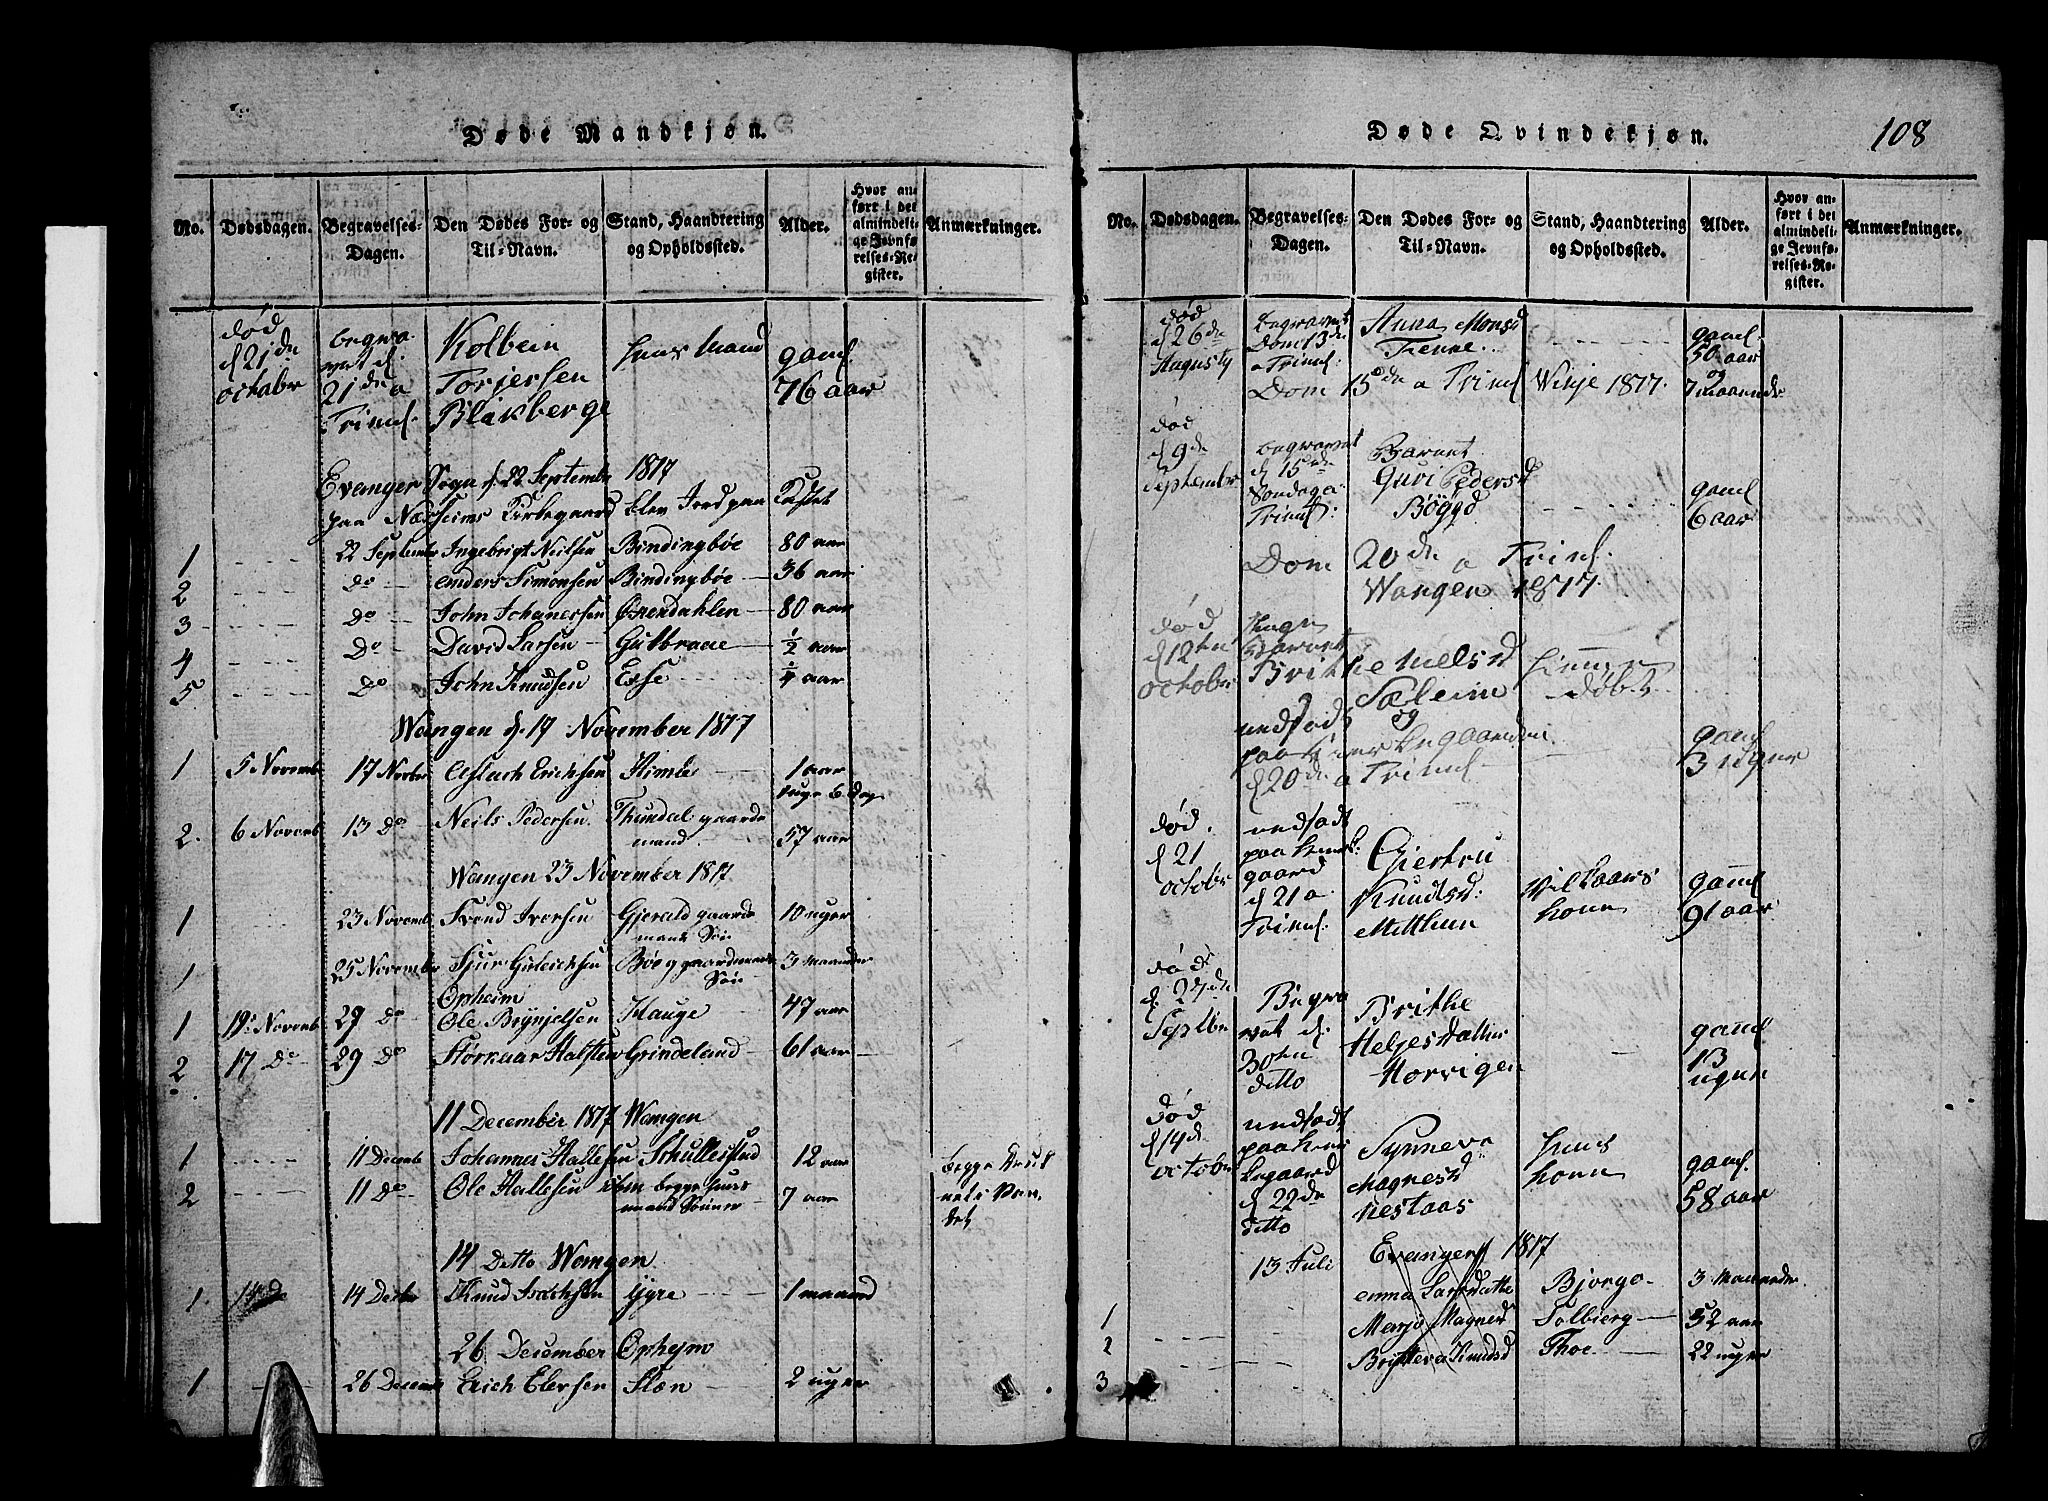 Døde Mandkjøn.
No. Dødsdagen. Begravelses-Dagen. Den Dødes For- og Til-Navn. Stand, Haandtering og Opholdssted. Alder. Hvor anført i det almindelige Jevnførelses-Register. Anmærkninger.
død d 21de octobr begravet d. 21de a Trinit. Kolbein Torjersen Blikberge huus Mand gaml 76 aar
Evanger Sogn d. 22 Septembr 1817
paa Kirkegaard Jord paa Kastet
1 22 Septembr Ingebrigt Neilsen Bindingbøe 80 aar
2 Do anders Simonsen Bindingbøe 36 aar
3 Do John Johanessen 80 aar
4 Do David Larsen Gulbraae ½ aar
5 Do John Knudsen Exse aar
Wangen d. 17 November 1817
1 5 Novemb 17 Novbr Aslach Erichsen Himle 1 aar uge 6 dag
2. 6 Novemb 13 Do Neils Pedersen Thundal gaardmand 57 aar
Wangen 23 November 1817
1 23 Novemb Svend Iversen Gjerald gaardmands Søn 10 uger
1 25 Novembr Sjur Bøe gaardmands Søn 3 maaneder
Opheim
1 19 Novemb 29 Do Ole Brynjelsen Hauge 47 aar
2. 17 Do 29 Do Halsten Grindeland 61 aar
11 December 1817 Wangen
1 11 Decemb Johannes Hallesen Schullestad 12 aar begge
2 11 Do Ole Hallesen ibm begge huusmand Sønner 7 aar
14 Detto Wangen
1. 14 Decbr Knud Isachsen Ygre 1 maaned
26 December Opheim
1 26 Decemb Erich Elersen Slæn 2 uger
Døde Qvindekjøn. 108
No. Dødsdagen. Begravelses-Dagen. Den Dødes For- og Til-Navn. Stand, Haandtering og Opholdssted. Alder. Hvor anført i det almindelige Jevnførelses-Register. Anmærkninger.
død d 26de Augusty begravet Dom 13de a Trinit. Anna Monsd Tenne gaml 50 aar og 7 maaneder
Dom 15de a Trinit Winje 1817
død d 9de Septembr begravet d 15de Søndag a Trinit. Barnet Guri Pedersd Bøgyd gaml 6 aar
Dom 20de a Trinit.
Wangen 1817
død d 12te octobr Barnet Brithe Nielsd Sæleim hiemmedøbt
og nedsadt paa Kirkegaarden d 20de a Trinit gaml 3 uger
død d 21 octobr nedsadt paa Kirkegaard d 21 a Trinit. Gjertru Knudtsd: Mitthun Vilkaars kone gaml 91 aar
død d. 27de Septbr Begravet d. 30te ditto Brithe Heljesdatter Horvigen gaml 13 uger
død d 14de octobr nedsadt paa Kirkegaard d 22de ditto Synneva Magnesd Nestaas Huus kone gaml. 58 aar
13 Juli Evanger 1817
1 anna Larsdatter Bjorgo 3 Maaneder
2 Marja Magnesd Solbierg 52 aar
3 Britteva Knudsd Thoe 22 uger